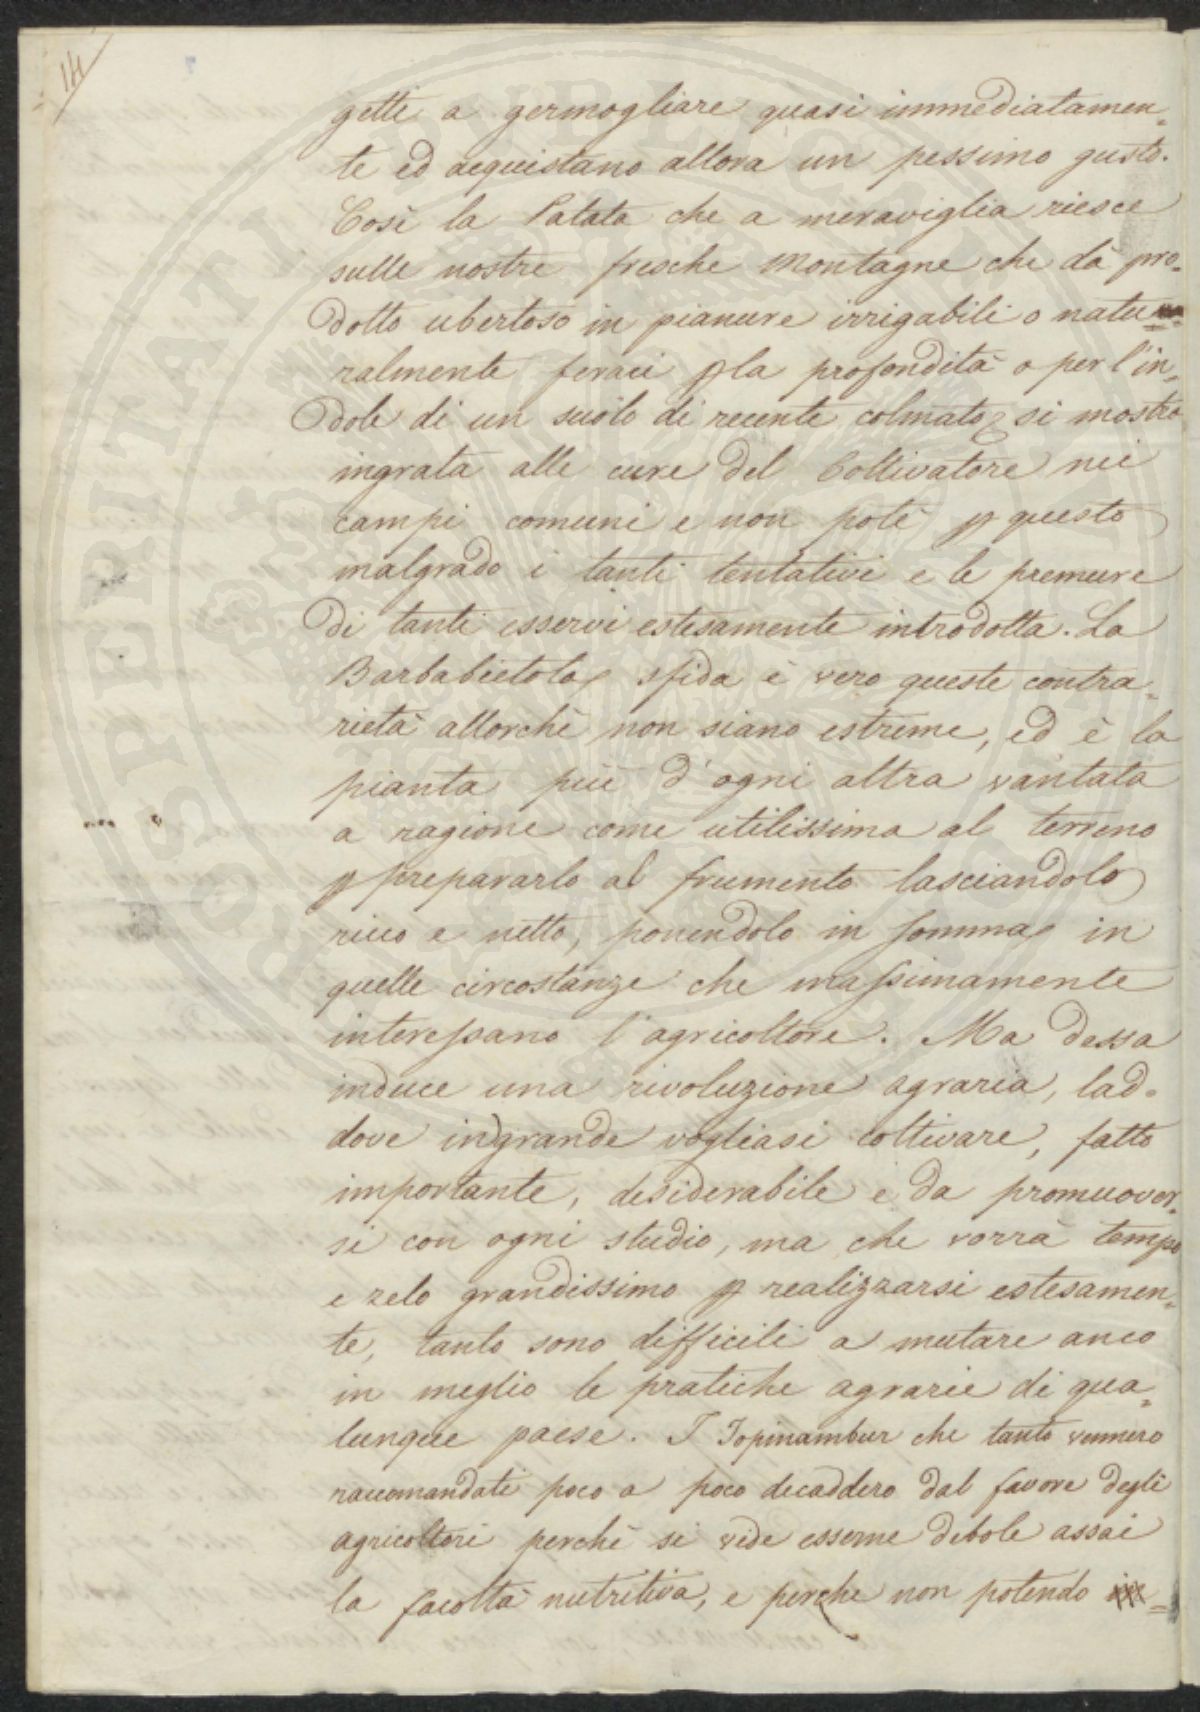 14
gette a germogliare quasi immediatamen=
te ed acquistano allora un pessimo gusto.
Così la Patata che a meraviglia riesce
sulle nostre fresche montagne che dà pro=
dotto ubertoso in pianure irrigabili o natu=
ralmente feraci p la profondità o per l'in=
dole di un suolo di recente colmato, si mostra
ingrata alle cure del Coltivatore nei
campi comuni e non potè p questo
malgrado i tanti tentativi e le premure
di tanti esservi estesamente introdotta. La
Barbabietola sfida è vero queste contra=
rietà allorchè non siano estreme, ed è la
pianta più d'ogni altra vantata
a ragione come utilissima al terreno
p prepararlo al frumento lasciandolo
ricco e netto, ponendolo in somma in
quelle circostanze che massimamente
interessano l'agricoltore. Ma dessa
induce una rivoluzione agraria, lad=
dove in grande vogliasi coltivare, fatto
importante, desiderabile e da promuover=
si con ogni studio, ma che vorrà tempo
e zelo grandissimo p realizzarsi estesamen=
te, tanto sono difficili a mutare anco
in meglio le pratiche agrarie di qua=
lunque paese. I Topinambur che tanto vennero
raccomandati poco a poco decaddero dal favore degli
agricoltori perchè si vide esserne debole assai
la facoltà nutritiva, e perche non potendo
PROSPERITATI PUBLICAE